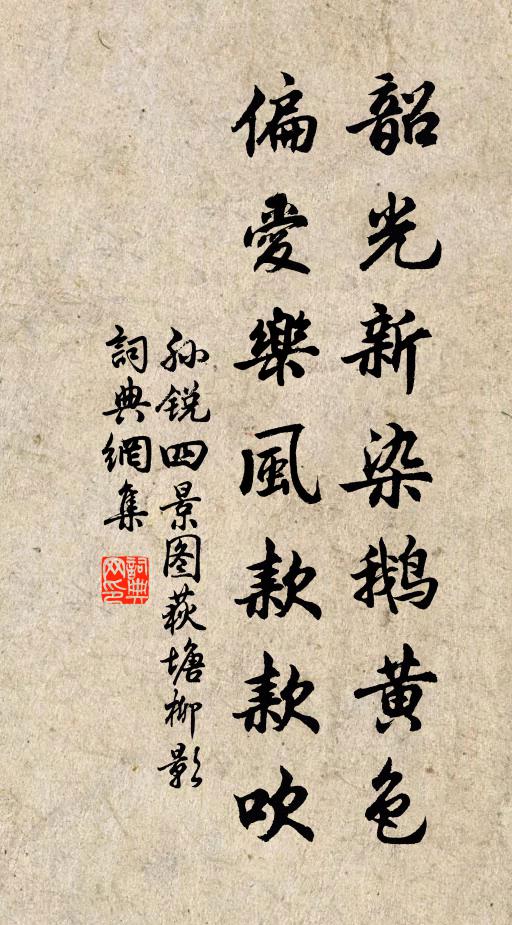 韶光新染鹅黄色
偏愛樂風款款吹
孙锐四景图荻塘柳影
詞典網集
詞典
网印